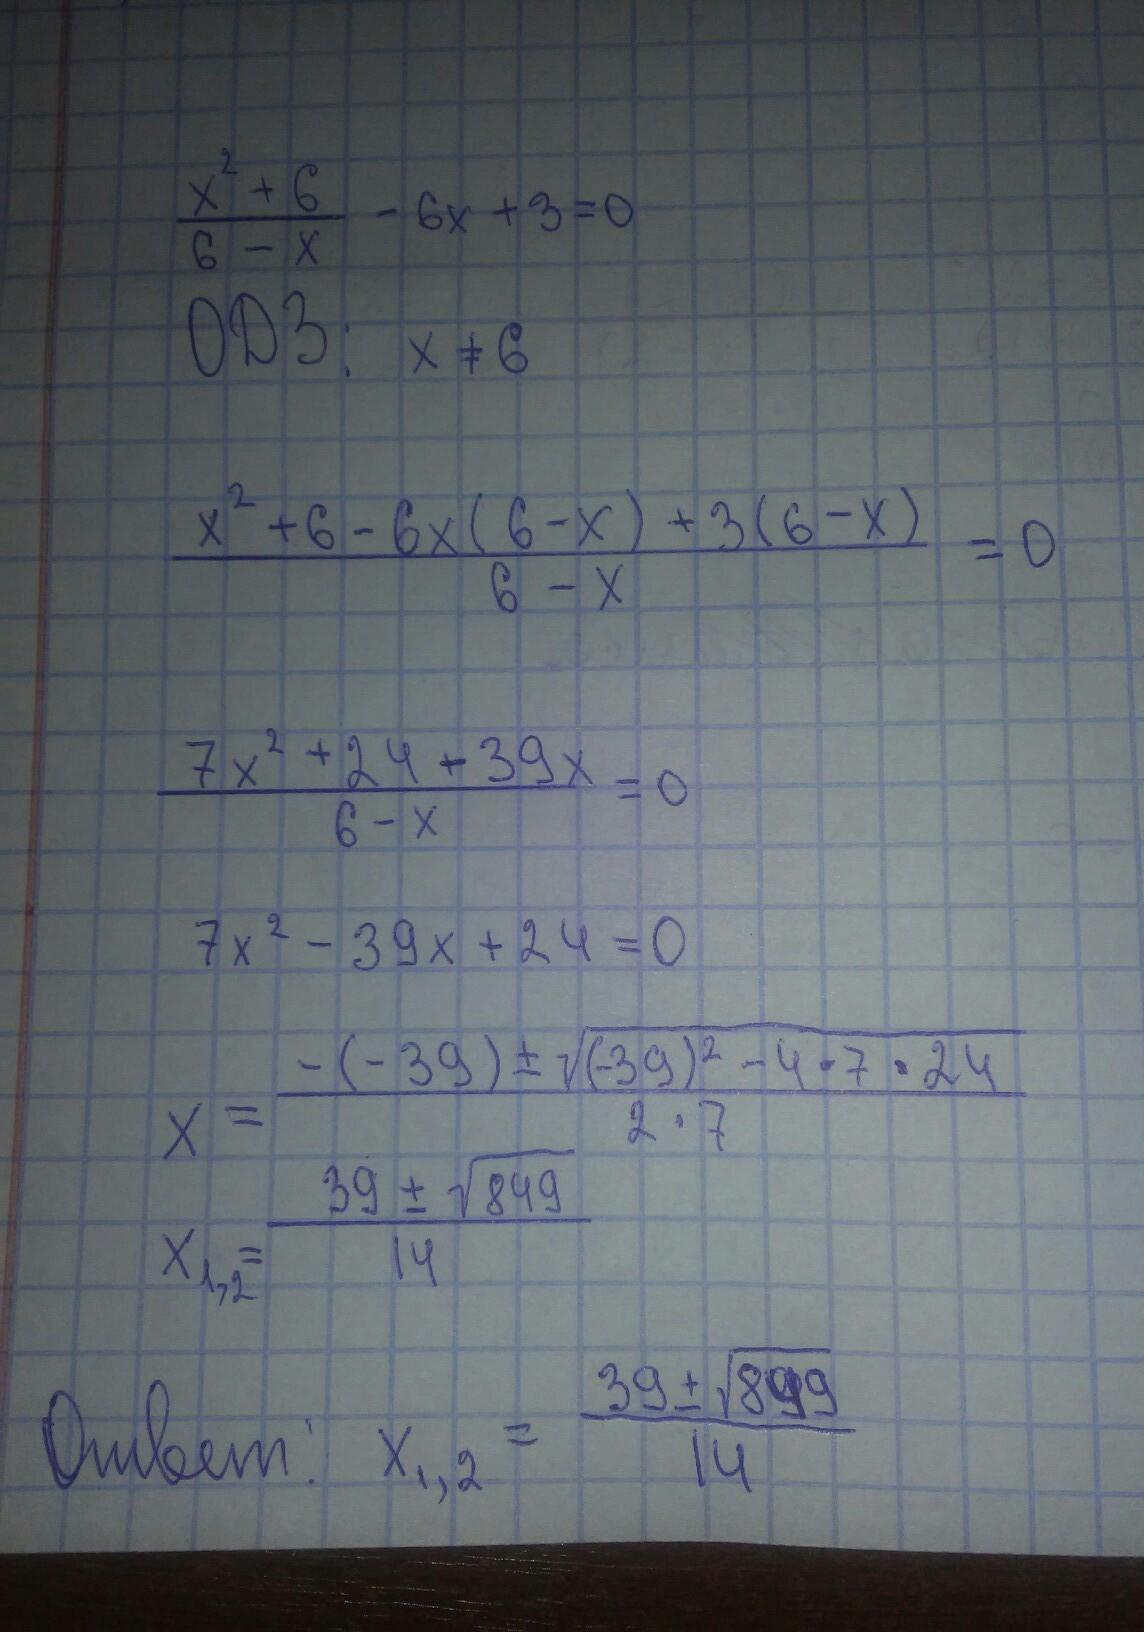 x² + 6 / 6 - x - 6x + 3 = 0
ОДЗ: x ≠ 6
x² + 6 - 6x(6 - x) + 3(6 - x) / 6 - x = 0
7x² + 24 - 39x / 6 - x = 0
7x² - 39x + 24 = 0
x = -(-39) ± √(-39)² - 4 · 7 · 24 / 2 · 7
x₁,₂ = 39 ± √849 / 14
Ответ: x₁,₂ = 39 ± √849 / 14